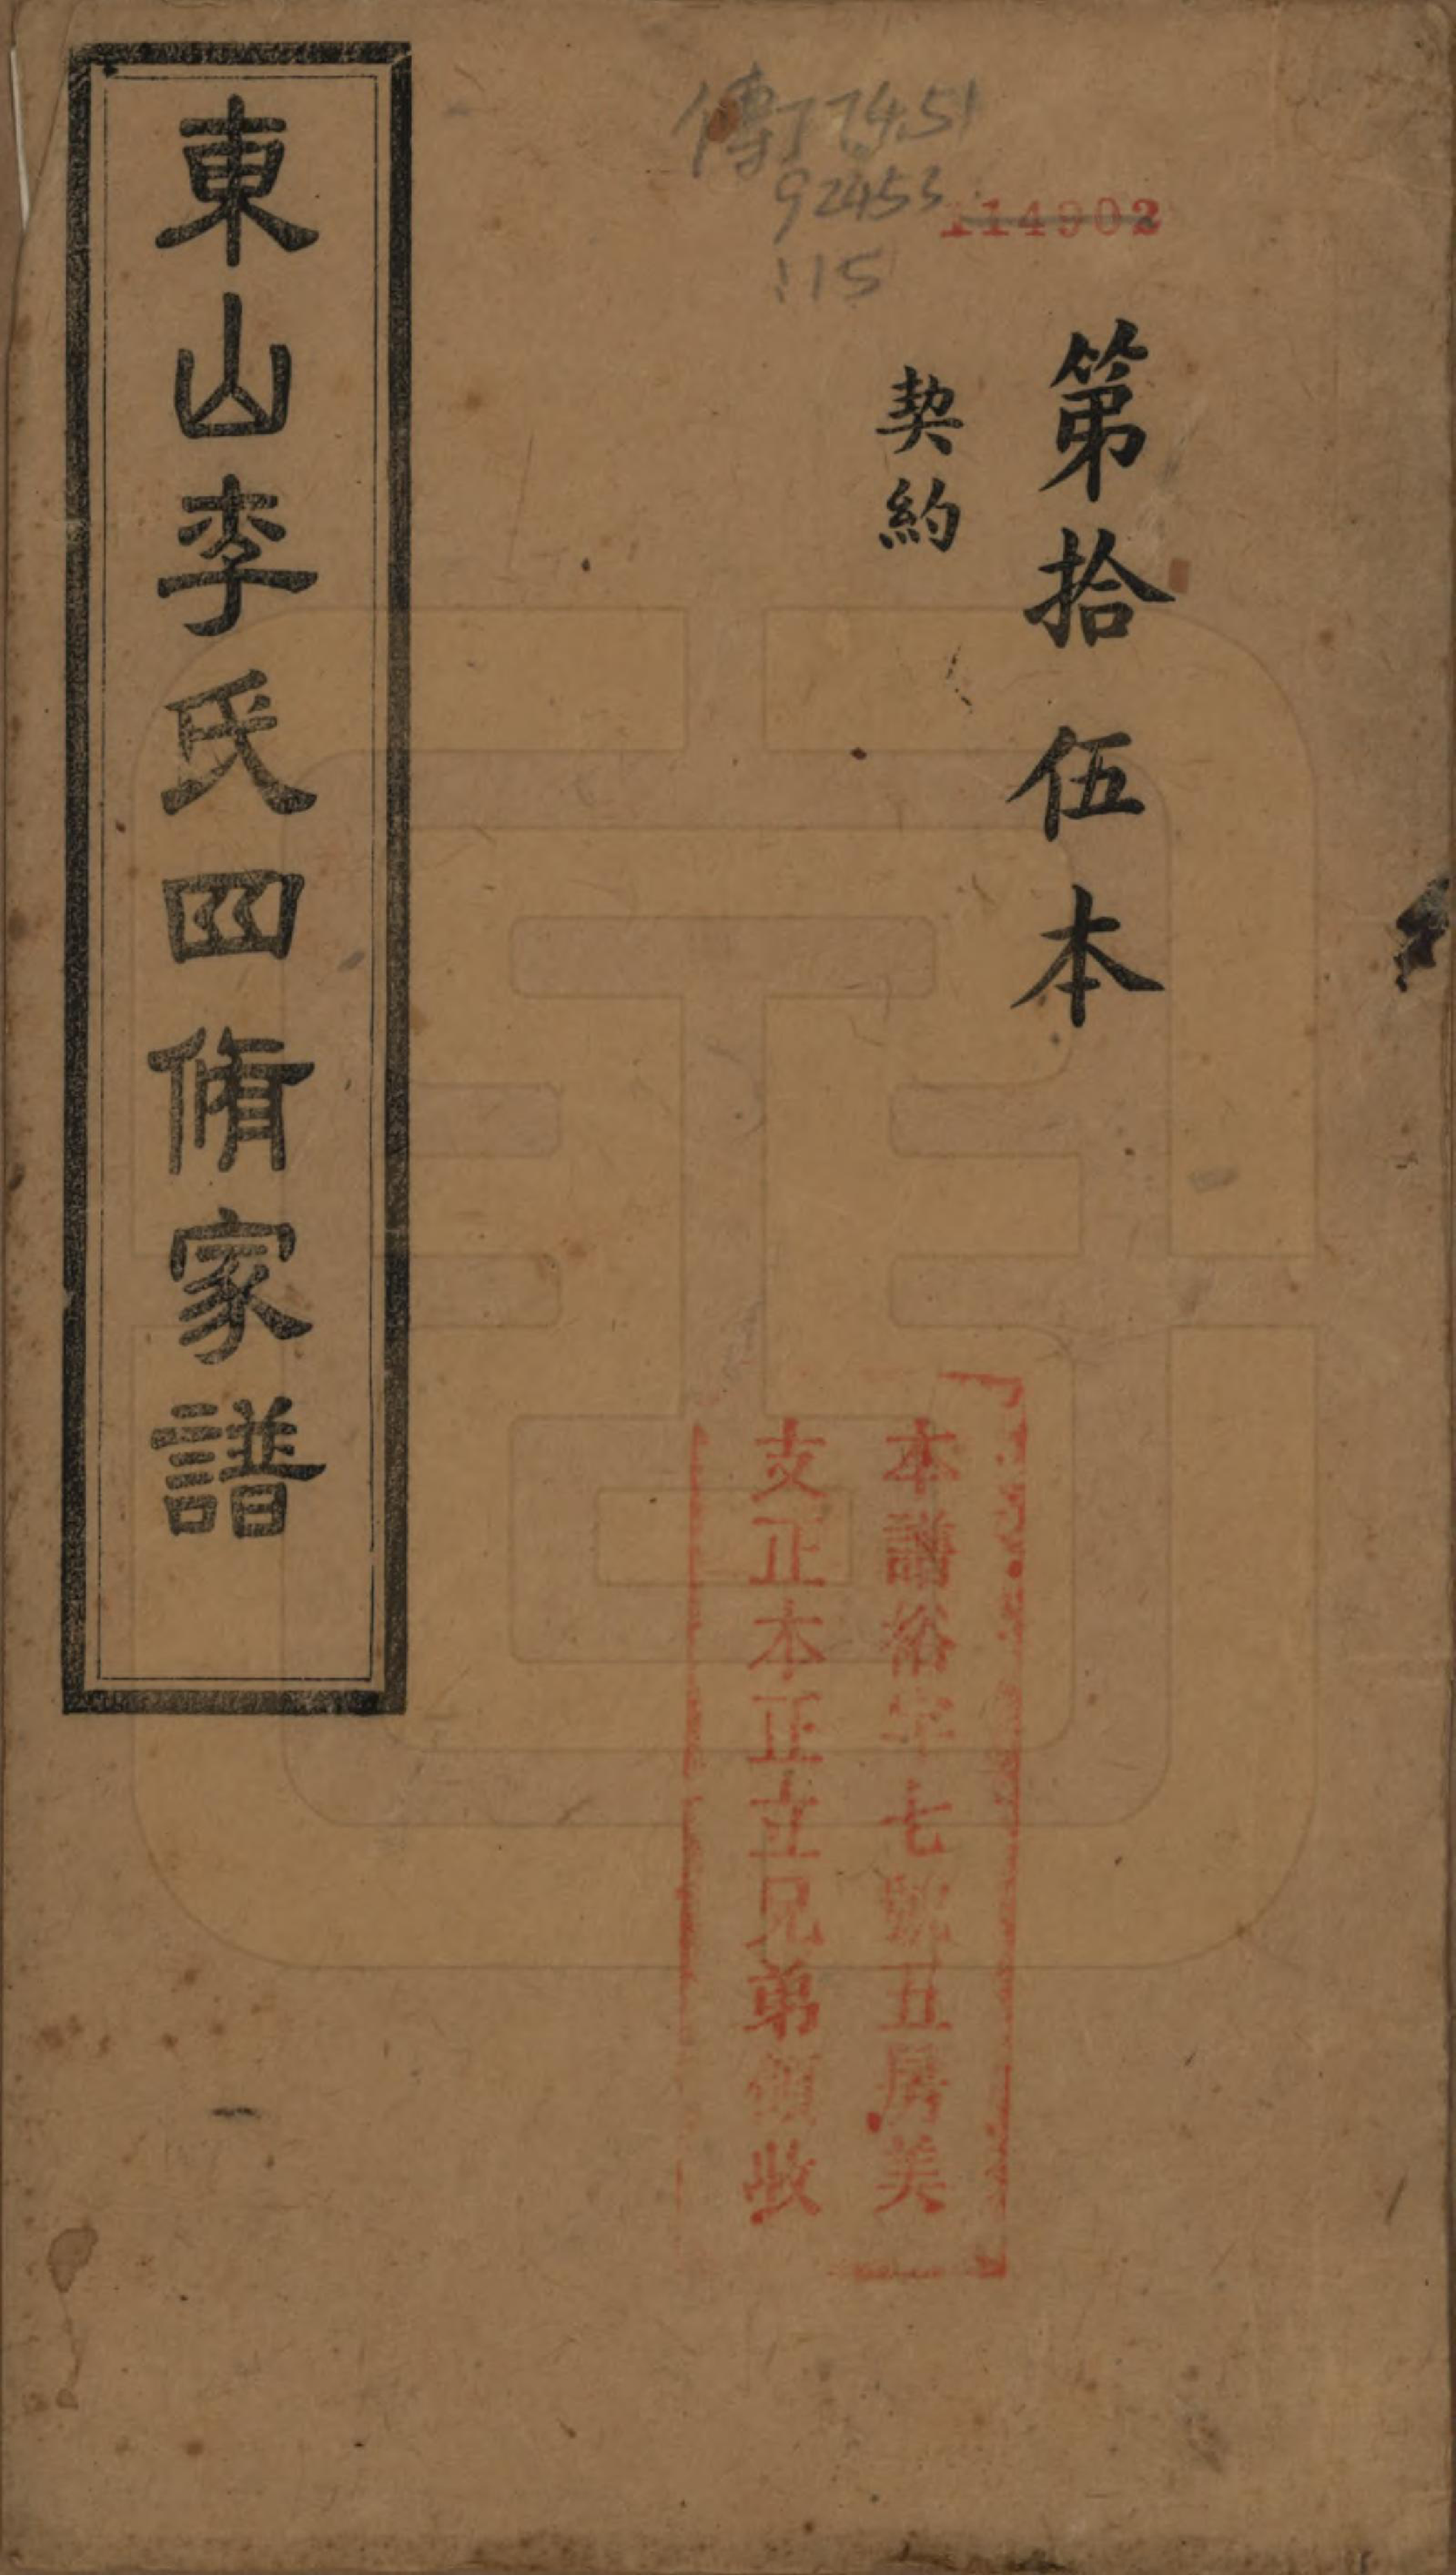 傳774.51
92453
115
114902
第拾伍本
契約
本譜裕字七號五房美
支正本正立兄弟領收
東山李氏四脩家譜